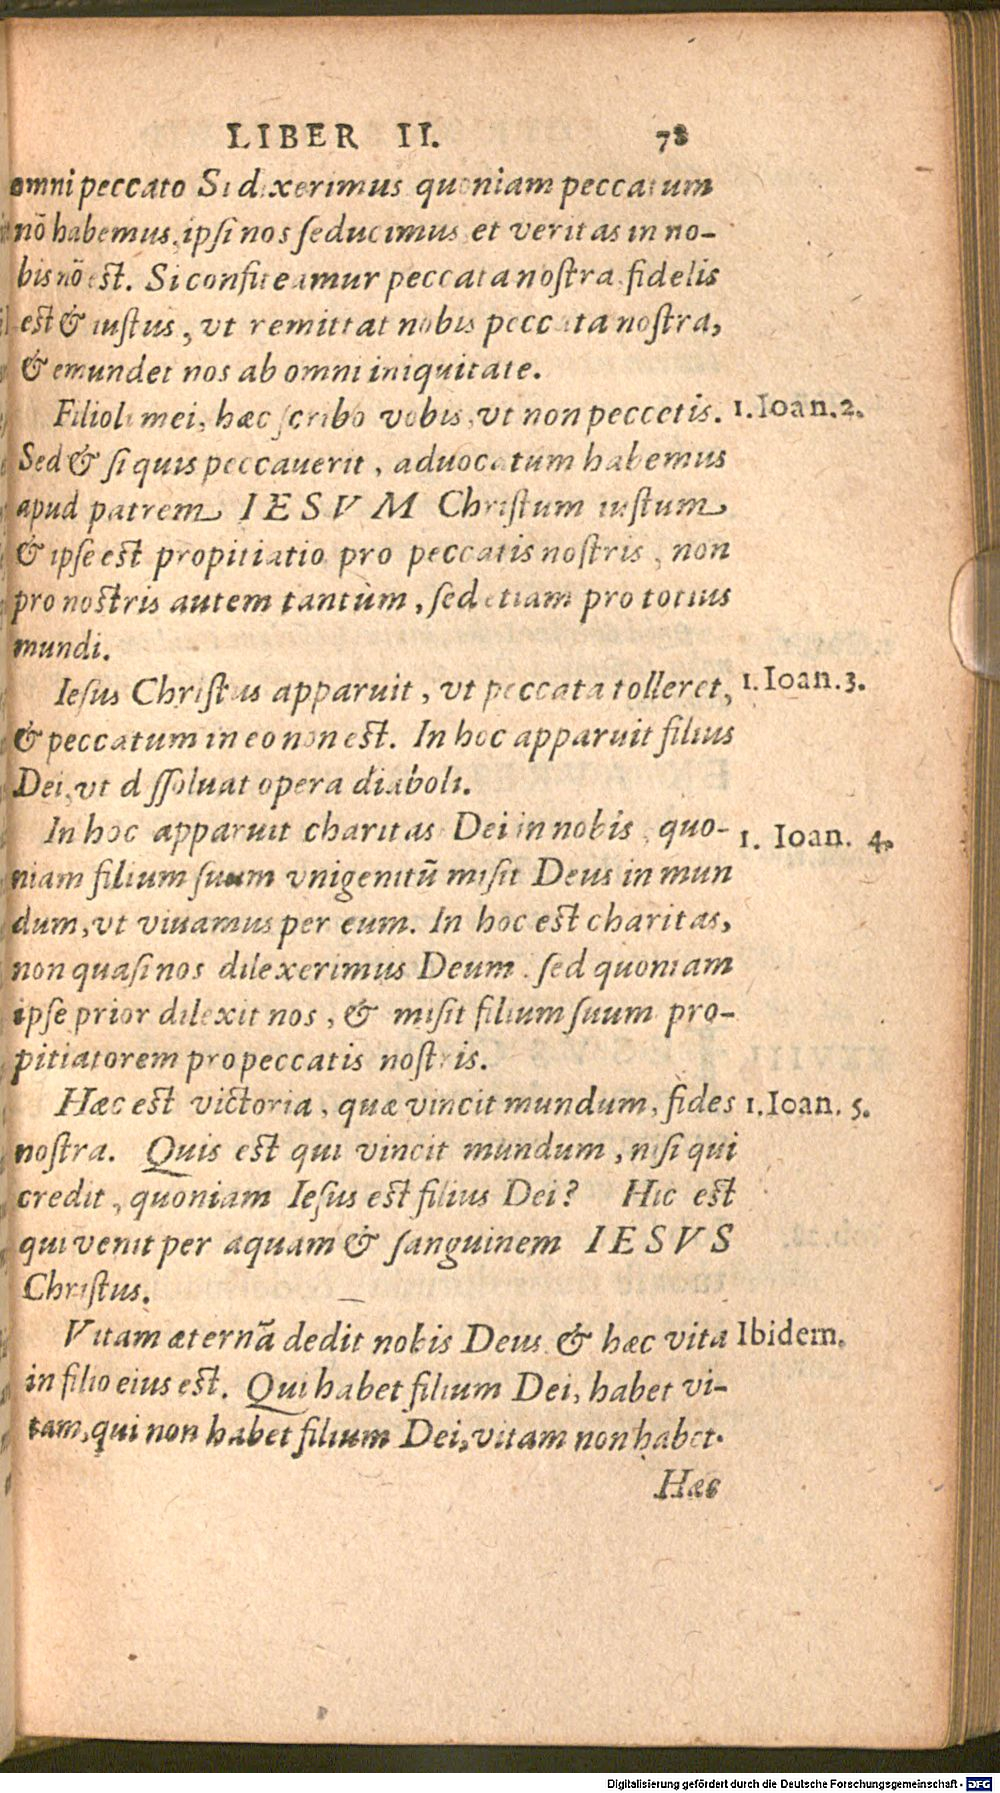 LIBER II. 78
omni peccato Si dixerimus quoniam peccatum
nō habemus, ipsi nos seducimus et veritas in no-
bis nō est. Si confiteamur peccata nostra fidelis
est & iustus, vt remittat nobis peccata nostra,
& emundet nos ab omni iniquitate.
Filioli mei, hæc scribo vobis, vt non peccetis. 1. Ioan. 2.
Sed & si quis peccauerit, aduocatum habemus
apud patrem IESVM Christum iustum
& ipse est propitiatio pro peccatis nostris, non
pro nostris autem tantùm, sed etiam pro totius
mundi.
Iesus Christus apparuit, vt peccata tolleret, 1. Ioan. 3.
& peccatum in eo non est. In hoc apparuit filius
Dei, vt dissoluat opera diaboli.
In hoc apparuit charitas Dei in nobis, quo- 1. Ioan. 4.
niam filium suum vnigenitū misit Deus in mun
dum, vt viuamus per eum. In hoc est charitas,
non quasi nos dilexerimus Deum. sed quoniam
ipse prior dilexit nos, & misit filium suum pro-
pitiatorem pro peccatis nostris.
Hæc est victoria, quæ vincit mundum, fides 1. Ioan. 5.
nostra. Quis est qui vincit mundum, nisi qui
credit, quoniam Iesus est filius Dei? Hic est
qui venit per aquam & sanguinem IESVS
Christus.
Vitam æternā dedit nobis Deus. & hæc vita Ibidem.
in filio eius est. Qui habet filium Dei, habet vi-
tam, qui non habet filium Dei, vitam non habet.
Hæc
Digitalisierung gefördert durch die Deutsche Forschungsgemeinschaft - DFG